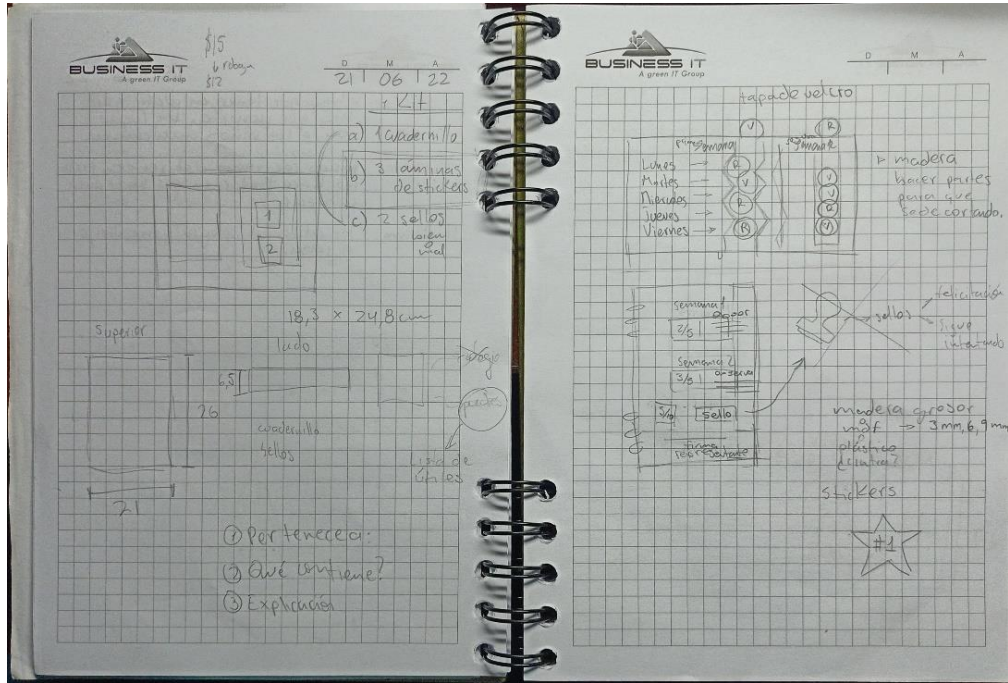 BUSINESS IT
A green IT Group
$15
$12
D M A
21 06 22
1 Kit
a) 1 cuadernillo
b) 3 láminas
de stickers
c) 2 sellos
bien
mal
1
2
18,3 × 24,8cm
Superior
lado
6,5
26
cuadernillo
sellos
21
Lista de
útiles
① Pertenece a:
② Qué contiene?
③ Explicación
BUSINESS IT
A green IT Group
D M A
tapa de velcro
V R
semana
Lunes → R
Martes → V V
Miercoles → R V
Jueves → R
Viernes → R V
madera
hacer partes
para que
cortando.
semana 1
2/5
semana 2
3/5
sello
firma
representante
sellos
felicitación
sigue
intentando
madera grosor
mdf → 3mm, 6, 9mm
plástico
stickers
#1